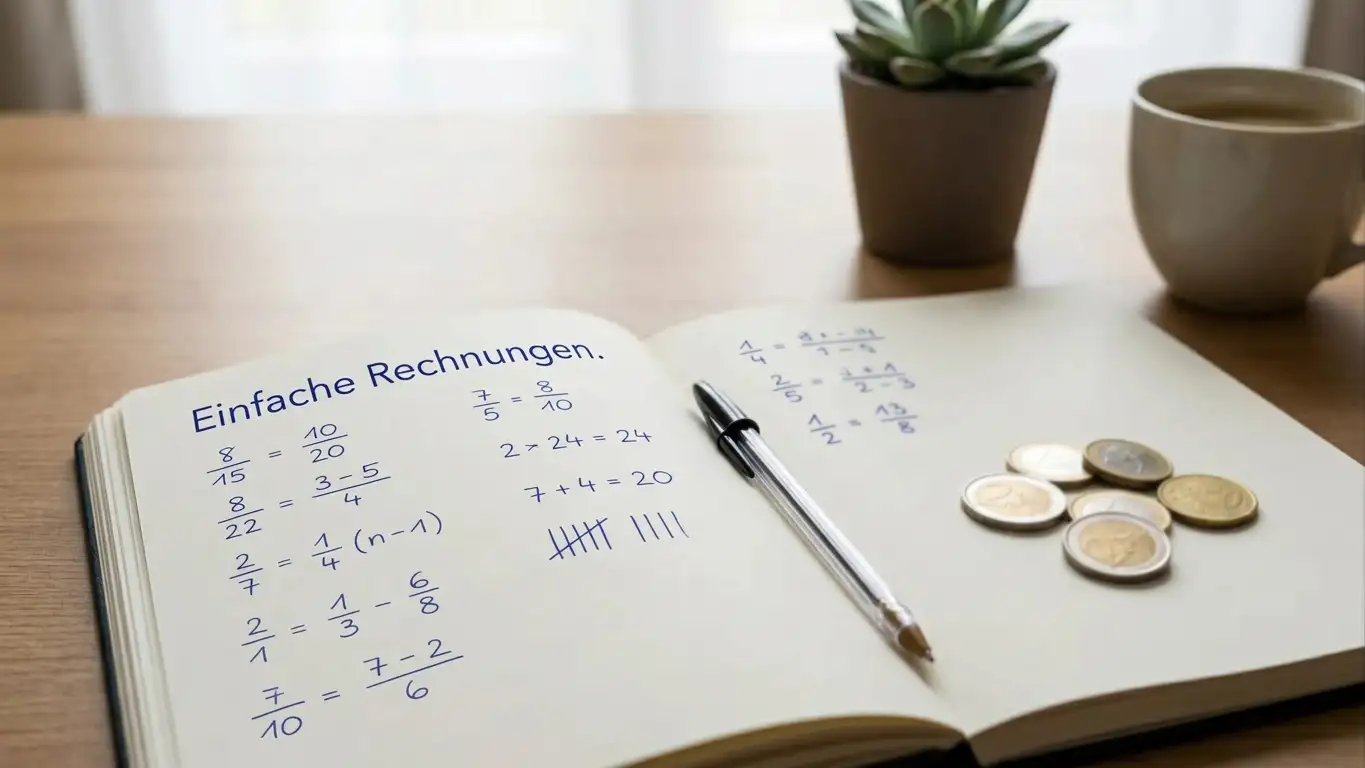 Einfache Rechnungen.
8/15 = 10/20
8/22 = (3 - 5)/4
2/7 = 1/4 (n - 1)
2/1 = 1/3 - 6/8
7/10 = (7 - 2)/6
7/5 = 8/10
2 > 24 = 24
7 + 4 = 20
1/4 =
2/5 =
1/2 = 13/8